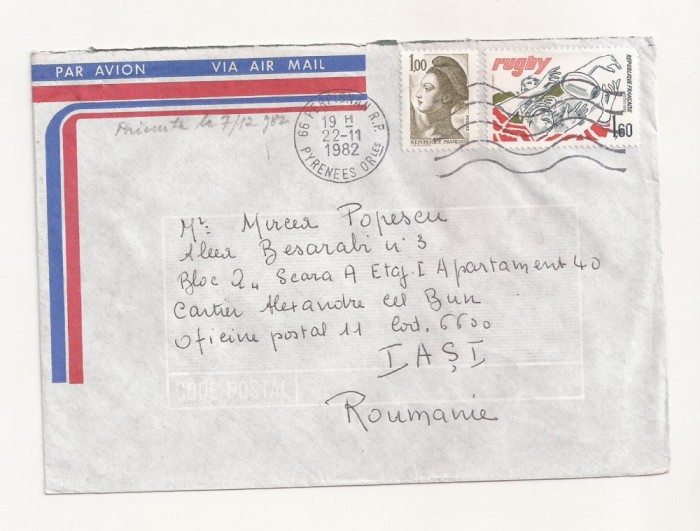 PAR AVION VIA AIR MAIL
66 PERPIGNAN R.P.
19 H
22-11
1982
PYRENEES OR LES
1,00
REPUBLIQUE FRANÇAISE
rugby
REPUBLIQUE FRANÇAISE
1,60
le 7/12 982
Mr: Mircea Popescu
Aleea Besarabi n: 3
Bloc 2,, Scara A Etaj. I Apartament 40
Cartier Alexandre cel Bun
Oficine postal 11 Cod. 6600
IAŞI
CODE POSTAL
Roumanie